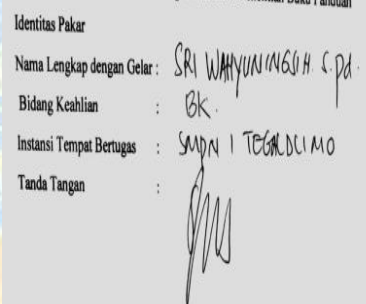 Buku Panduan
Identitas Pakar
Nama Lengkap dengan Gelar : SRI WAHYUNINGSIH. S.Pd.
Bidang Keahlian : BK.
Instansi Tempat Bertugas : SMPN 1 TEGALDLIMO
Tanda Tangan :